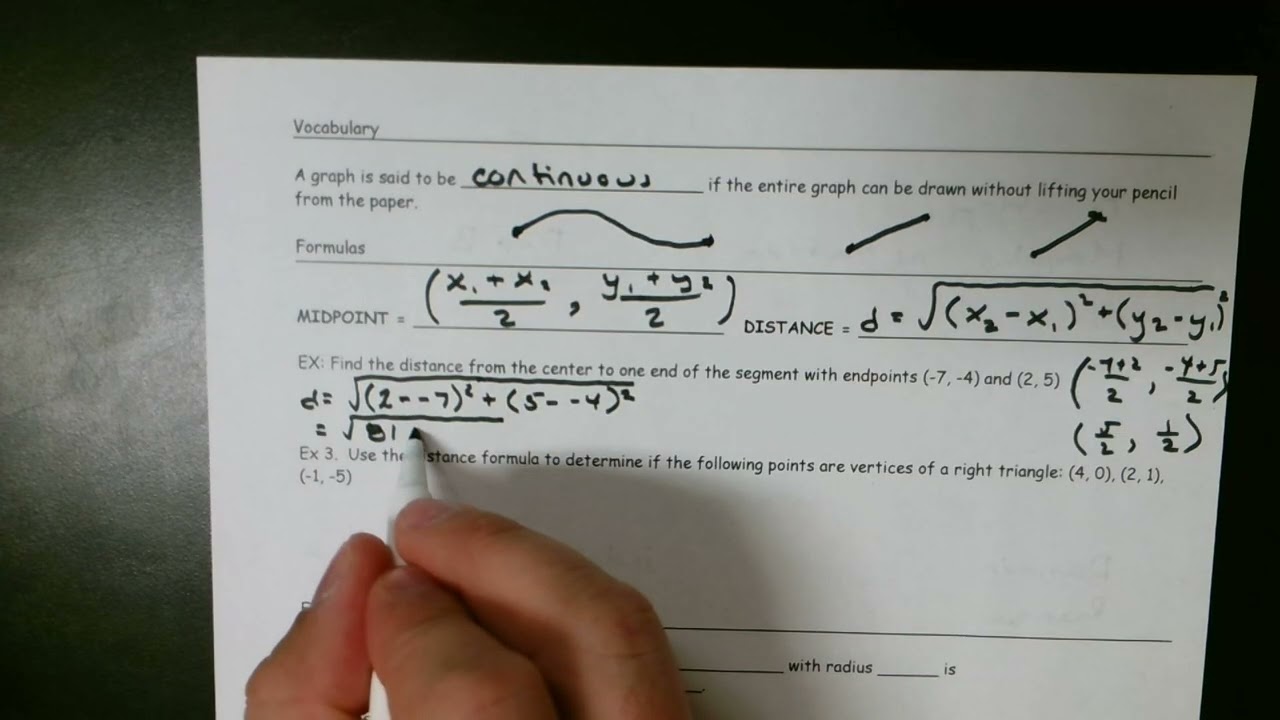 Vocabulary
A graph is said to be continuous if the entire graph can be drawn without lifting your pencil
from the paper.
Formulas
MIDPOINT = (x₁ + x₂ / 2 , y₁ + y₂ / 2) DISTANCE = d = √(x₂ - x₁)² + (y₂ - y₁)²
EX: Find the distance from the center to one end of the segment with endpoints (-7, -4) and (2, 5) (-7+2 / 2 , -4+5 / 2)
d = √(2 - -7)² + (5 - -4)²
= √81
(5/2 , 1/2)
Ex 3. Use the distance formula to determine if the following points are vertices of a right triangle: (4, 0), (2, 1),
(-1, -5)
with radius is